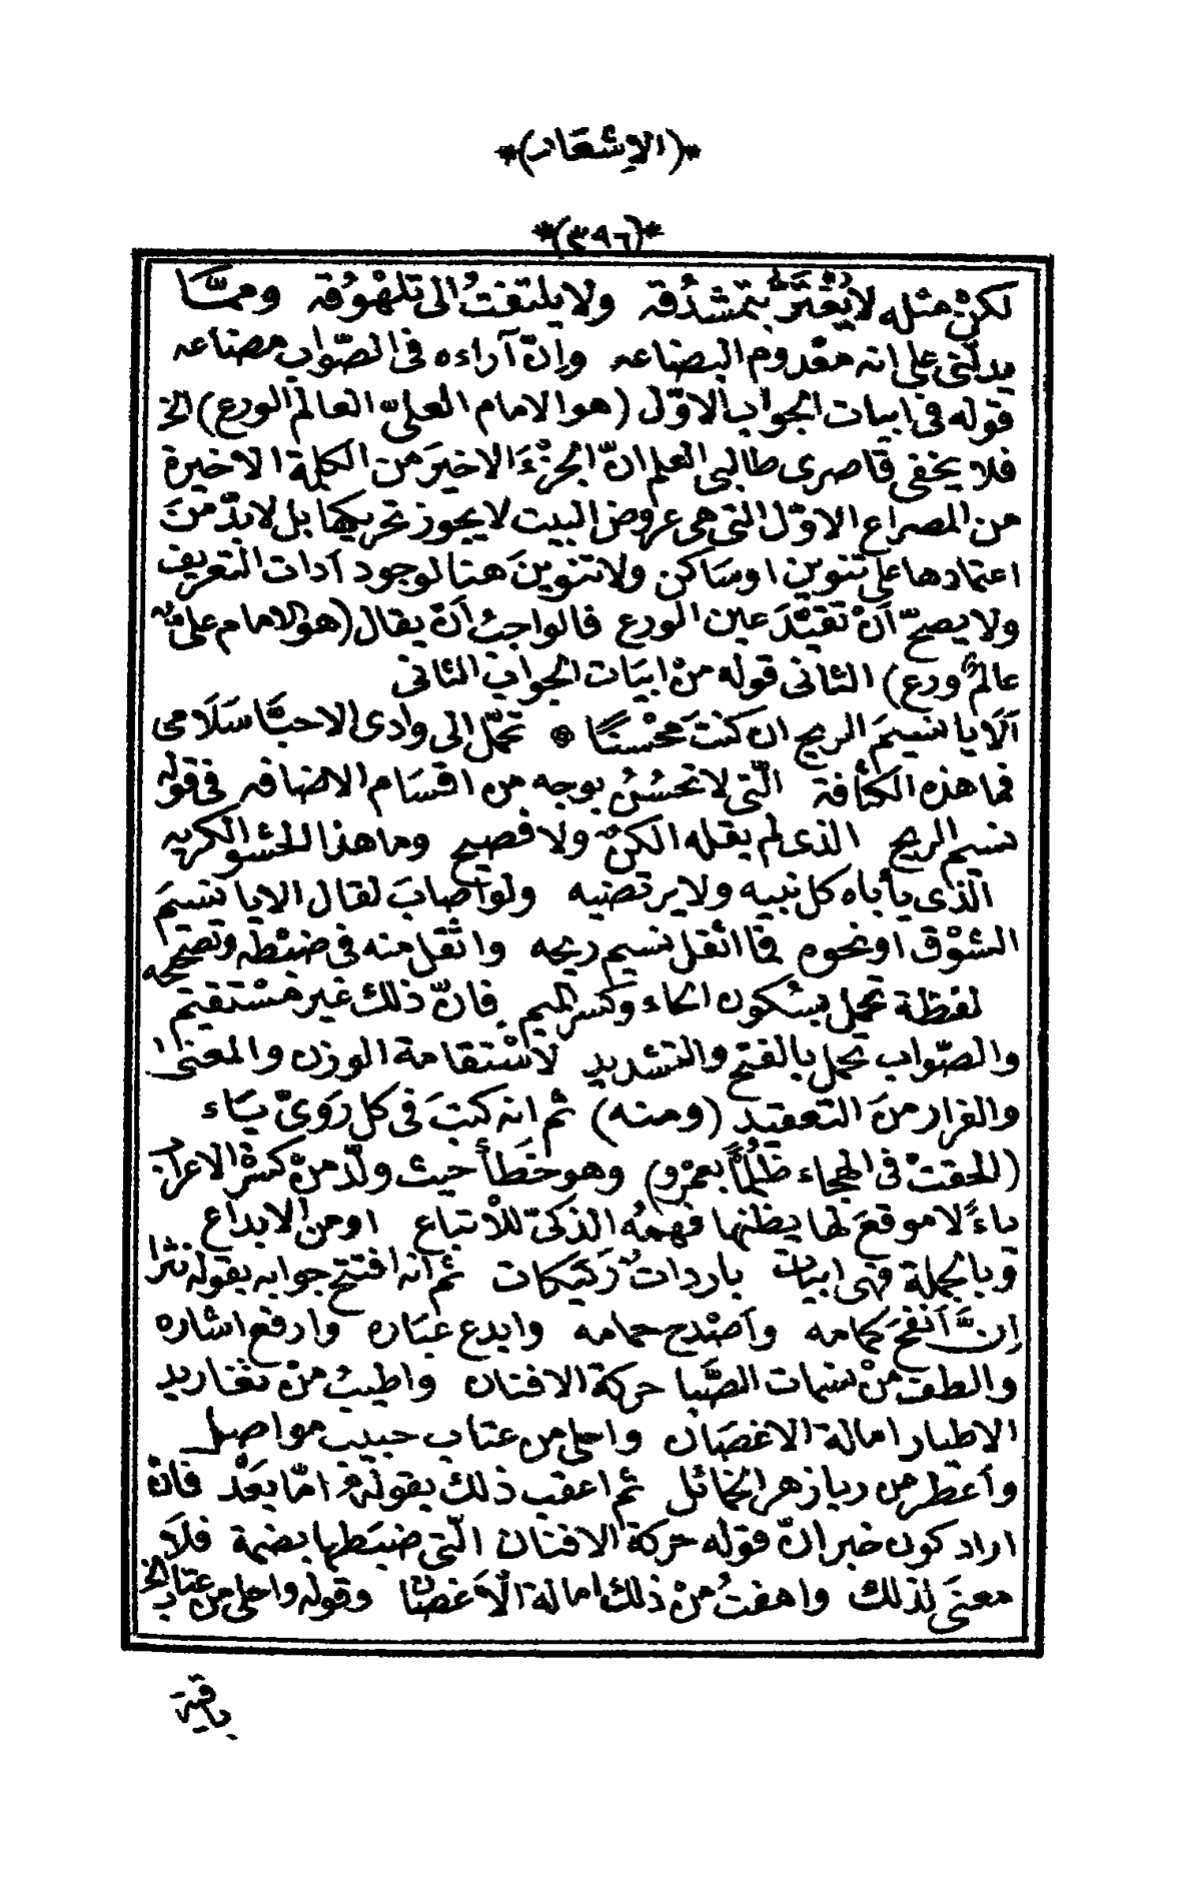 *(الإشعار)*
*(٣٩٦)*
لكنْ مثله لا يُغْتَرُّ بتمشدُقه ولا يلتفتُ الى تلهْوُقه وممَّا
يدلّنى على انه معْدوم البضاعه وإنّ آراءه فى الصّواب مضاعه
قوله فى ابيات الجواب الاوّل (هو الامام العلىّ العالم الورع) الخ
فلا يخفى قاصرى طالبى العلم انّ الجزْءَ الاخيرَ من الكلمة الاخيرة
من المصراع الاوّل التى هى عروض البيت لا يجوز تحريكها بل لابدّ منَ
اعتمادها على تنوين اوسَاكن ولا تنوينَ هنا لوجود آدات التعريف
ولا يصحّ أنْ تقيّدَ عين الورع فالواجبُ أنْ يقال (هو الامام علىٌّ
عالمٌ ورع) الثانى قوله منْ ابيَات الجواب الثانى
ألَا يا نسيمَ الريح ان كنتَ محْسنًا ۞ تحمّل الى وادى الاحبَّا سَلَامى
فما هذه الكثافة الّتى لا تحسُنُ بوجه من اقسَام الاضافه فى قوله
نسيم الريح الذى لم يقله الكنٌ ولا فصيح وما هذا الحشو الكريه
الّذى يأباه كل نبيه ولا يرتضيه ولو اصابَ لقال الايا نسيمَ
الشوْق اونحوه فما اثقل نسيم ريحه واثْقل منه فى ضبْطه وتصحيحه
لفظة تحمل بسُكون الحاء وكسر الميم فانّ ذلك غير مسْتقيم
والصّواب تحمل بالفتح والتشديد لاسْتقامة الوزن والمعنى
والفرار منَ التعقيد (ومنه) ثم انه كتبَ فى كل رَوىّ يَاء
(الحقتْ فى الهجاء ظلْمًا بعمْرو) وهو خطَأ حيث ولّد منْ كسْرة الاعراب
ياءً لا موقعَ لها يظنها فهمُه الذكىّ للاْتباع او من الابداع
وبالجملة فهى ابيات باردات رَكيكات ثم انه افتتح جوابه بقوله نثرا
إنَّ أنفحَ كمامه وأصْدح حمامه وابدع عبَاره وارفع اشاره
والطف منْ نسمات الصَّبا حركة الافنان واطيبُ منْ تغاريد
الاطيار امالة الاغصَان واحلى من عتاب حبيب مواصل
وأعطر من ريا زهر الخمائل ثم اعقب ذلك بقوله امّا بعَدْ فانْ
اراد كون خبر انّ قوله حركة الافنان الّتى ضبَطها بضمة فلَا
معنىَ لذلك واهفتُ منْ ذلك امالة الأغصَان وقوله واحلى من عتاب الخ
باقية